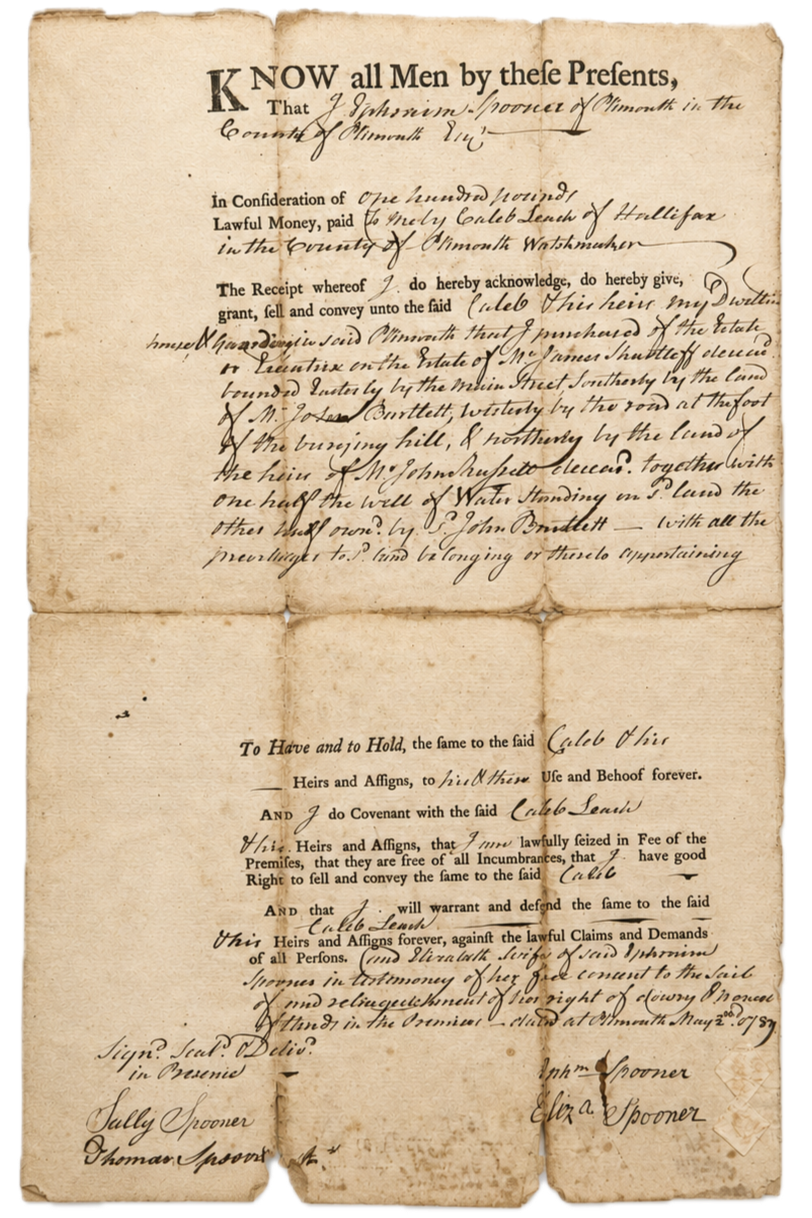 KNOW all Men by theſe Preſents,
That I Ephraim Spooner of Plimouth in the
County of Plimouth Esqr
In Conſideration of one hundred pounds
Lawful Money, paid to me by Caleb Leach of Hallifax
in the County of Plimouth Watchmaker
The Receipt whereof I do hereby acknowledge, do hereby give,
grant, ſell and convey unto the ſaid Caleb & his heirs my Dwelling
house & in said Plimouth that I purchased of the Estate
or Executrix on the Estate of Mr James Shurtleff deceasd.
bounded Easterly by the main Street Southerly by the land
of Mr Bartlett, westerly by the road at the foot
of the burying hill, & northerly by the land of
the heirs of Mr John Russell deceasd. together with
one half the well of Water Standing on sd. land the
other half ownd. by sd. John Bartlett — with all the
previledges to sd. land belonging or thereto appertaining
To Have and to Hold, the ſame to the ſaid Caleb & his
— Heirs and Aſſigns, to his & their Uſe and Behoof forever.
AND I do Covenant with the ſaid Caleb Leach
& his Heirs and Aſſigns, that I am lawfully ſeized in Fee of the
Premiſes, that they are free of all Incumbrances, that I have good
Right to ſell and convey the ſame to the ſaid Caleb —
AND that I will warrant and defend the ſame to the ſaid
Caleb Leach
& his Heirs and Aſſigns forever, againſt the lawful Claims and Demands
of all Perſons. and Elizabeth wife of said Ephraim
Spooner in testemoney of her free consent to the Sail
of and relinquishment of her right of dowry
of thirds in the Premises — dated at Plimouth May 2nd. 1789
Signd. Seald. & Delivd.
in Presence —
Ephm Spooner
Eliza Spooner
Sally Spooner
Thomas Spooner